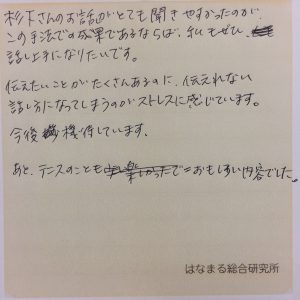 杉下さんのお話がとても聞きやすかったのが、
この手法での成果であるならば、私もぜひ、
話し上手になりたいです。
伝えたいことがたくさんあるのに、伝えれない
話し方になってしまうのがストレスに感じています。
今後期待しています。
あと、テニスのことも おもしろい内容でした。
はなまる総合研究所